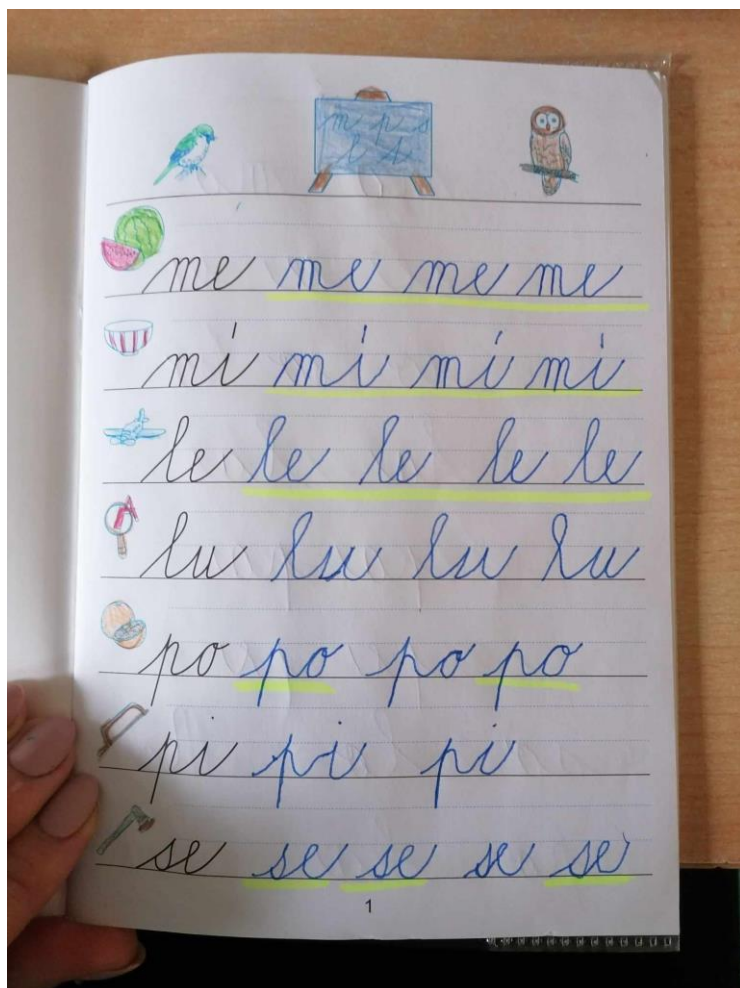 m p s
me me me me
mí mí mí mí
le le le le le
lu lu lu lu
po po po po
pi pi pi
se se se se se
1